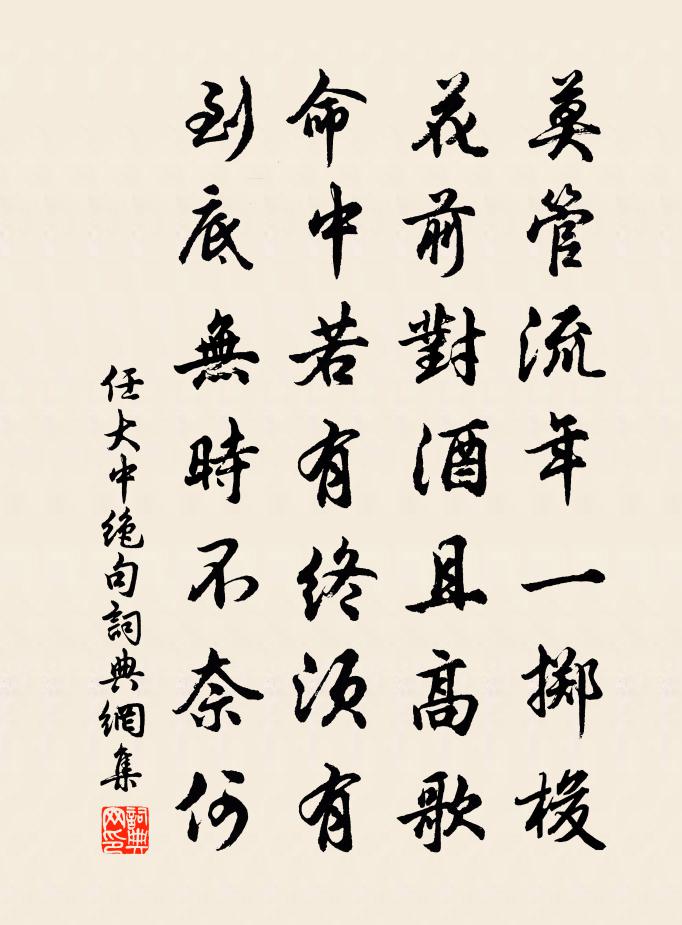 莫管流年一擲梭
花前對酒且高歌
命中若有終須有
到底無時不奈何
任大中絕句詞典網集
詞典网印